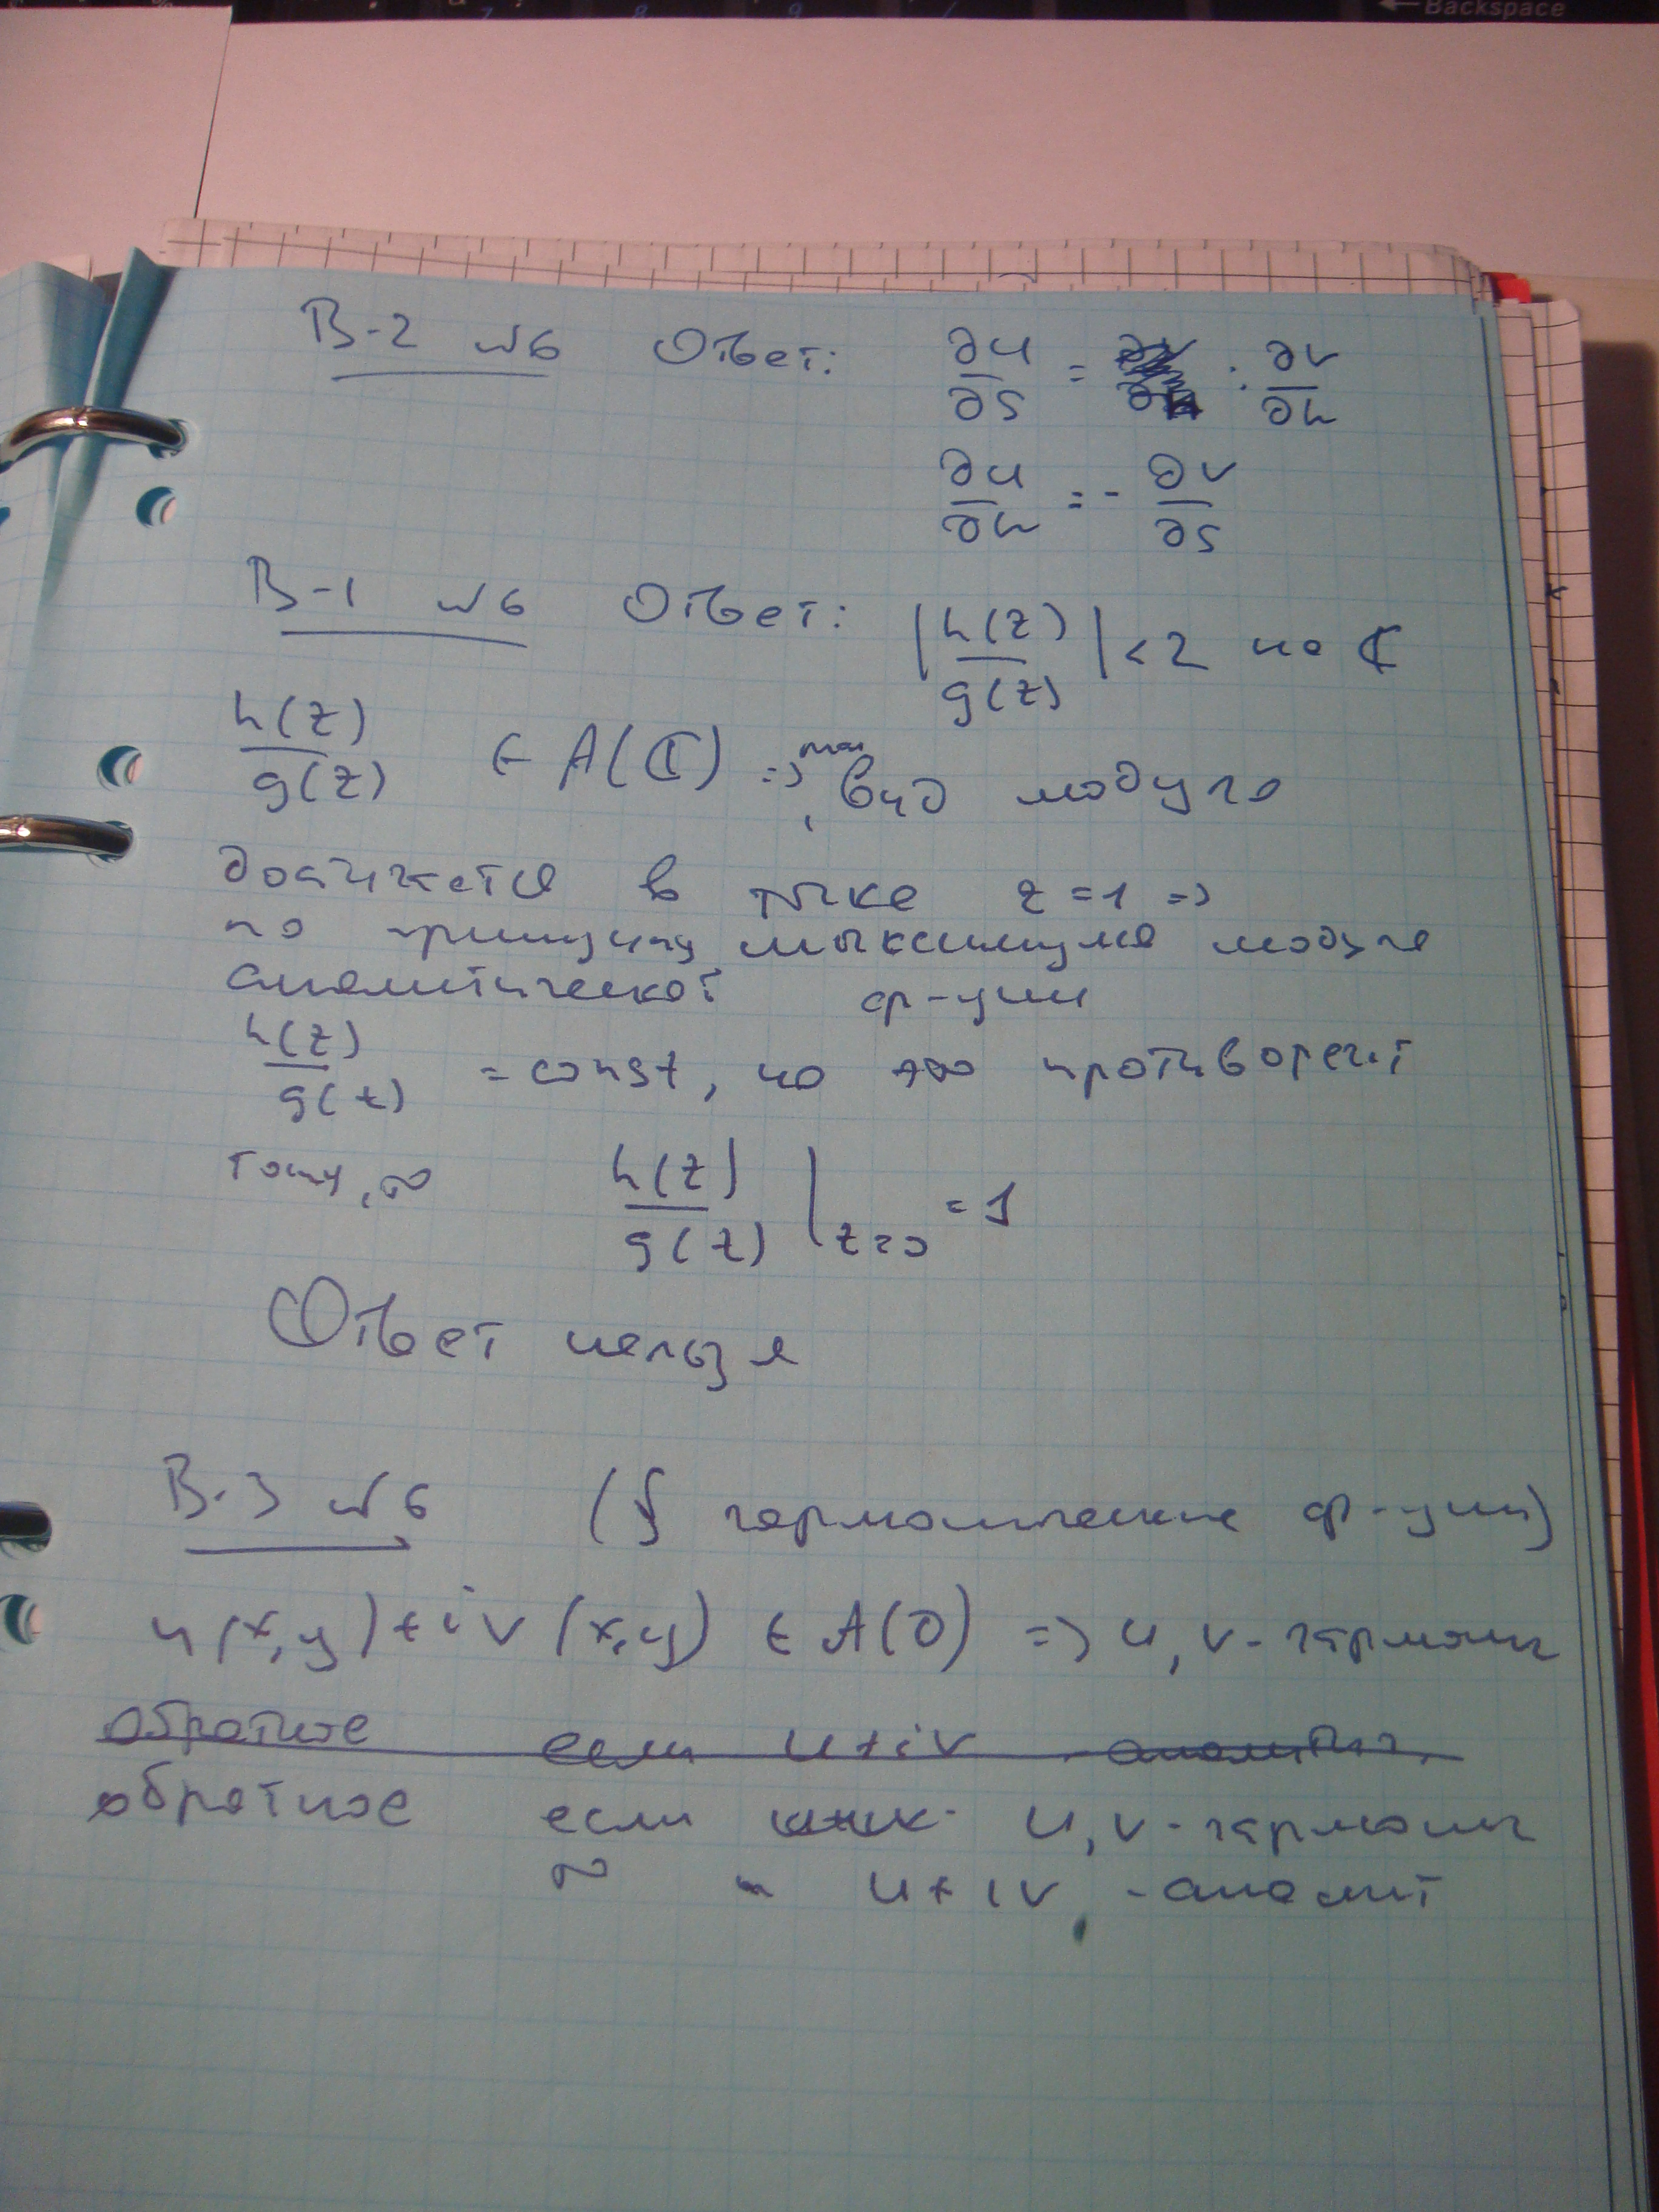 Backspace
В-2 №6 Ответ: ∂u/∂s = ∂v/∂n
∂u/∂n = - ∂v/∂s
В-1 №6 Ответ: |h(z)/g(z)| < 2 на ℂ
h(z)/g(z) ∈ A(ℂ) => max модуля
достижется в точке z = 1 =>
по принципу максимума модуля
аналитической ф-ции
h(z)/g(z) = const, но это противоречит
тому, что h(z)/g(z) |z=0 = 1
Ответ нельзя
В-3 №6 (§ гармонические ф-ции)
u(x,y) + iv(x,y) ∈ A(D) => u, v - гармонич
обратное если u+iv аналитич.
обратное если u, v - гармонич
то u + iv - аналит